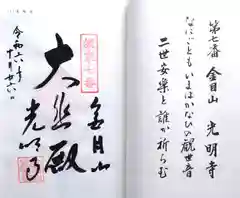 第七番 金目山 光明寺
なにごとも いまはかなひの 観世音
二世安楽と 誰か祈らむ
令和六年
十月廿六日
大悲殿
金目山
光明寺